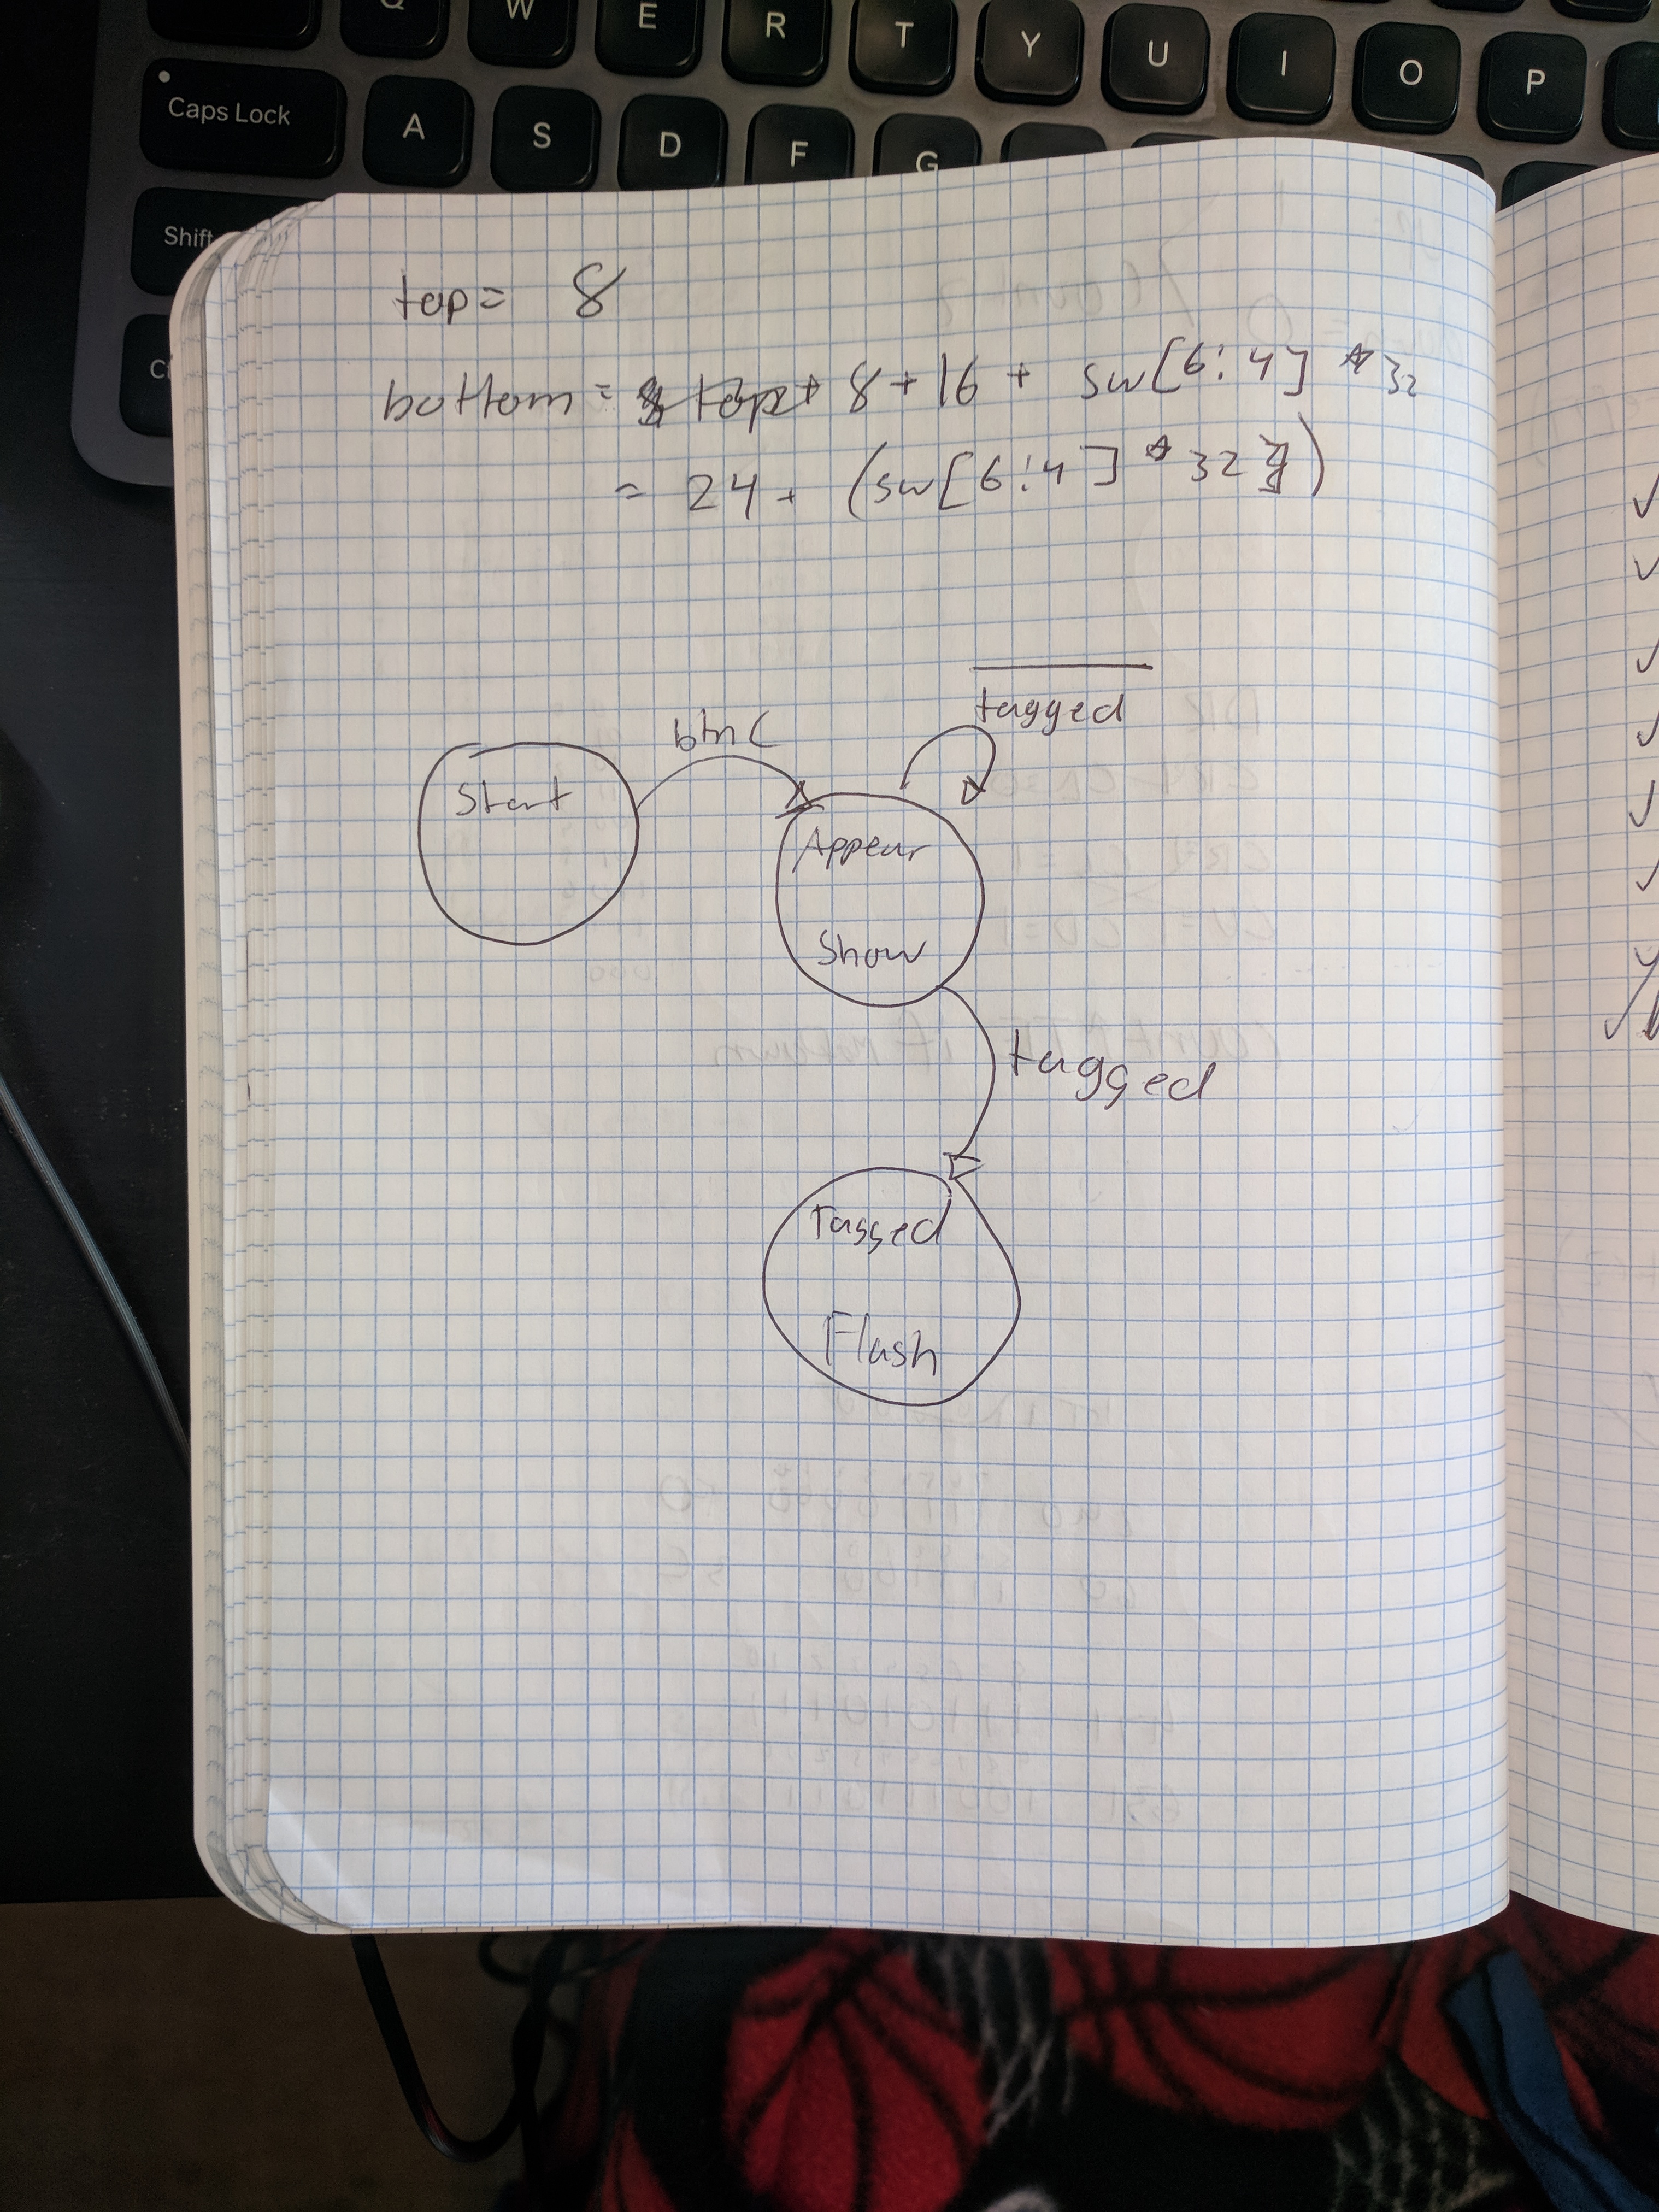 Q W E R T Y U I O P
Caps Lock A S D F G
Shift
top= 8
bottom = 8 + 16 + sw[6:4] * 32
= 24 + (sw[6:4] * 32)
tagged
btnC
Start
Appear
Show
tagged
Tagged
Flash